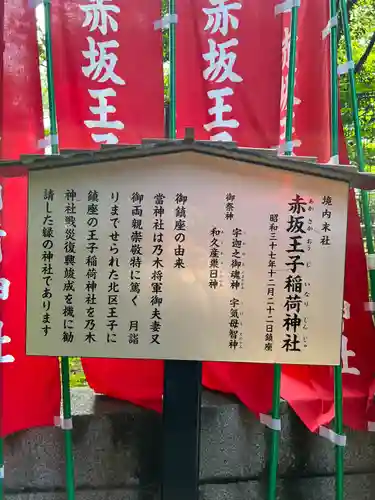 境内末社
赤坂王子稲荷神社
あかさかおうじいなりじんじゃ
昭和三十七年十二月二十二日鎮座
御祭神
宇迦之御魂神
宇気母智神
和久産巣日神
御鎮座の由来
当神社は乃木将軍御夫妻又
御両親崇敬特に篤く 月詣
りまでせられた北区王子に
鎮座の王子稲荷神社を乃木
神社戦災復興竣成を機に勧
請した縁の神社であります
赤坂王
赤坂王